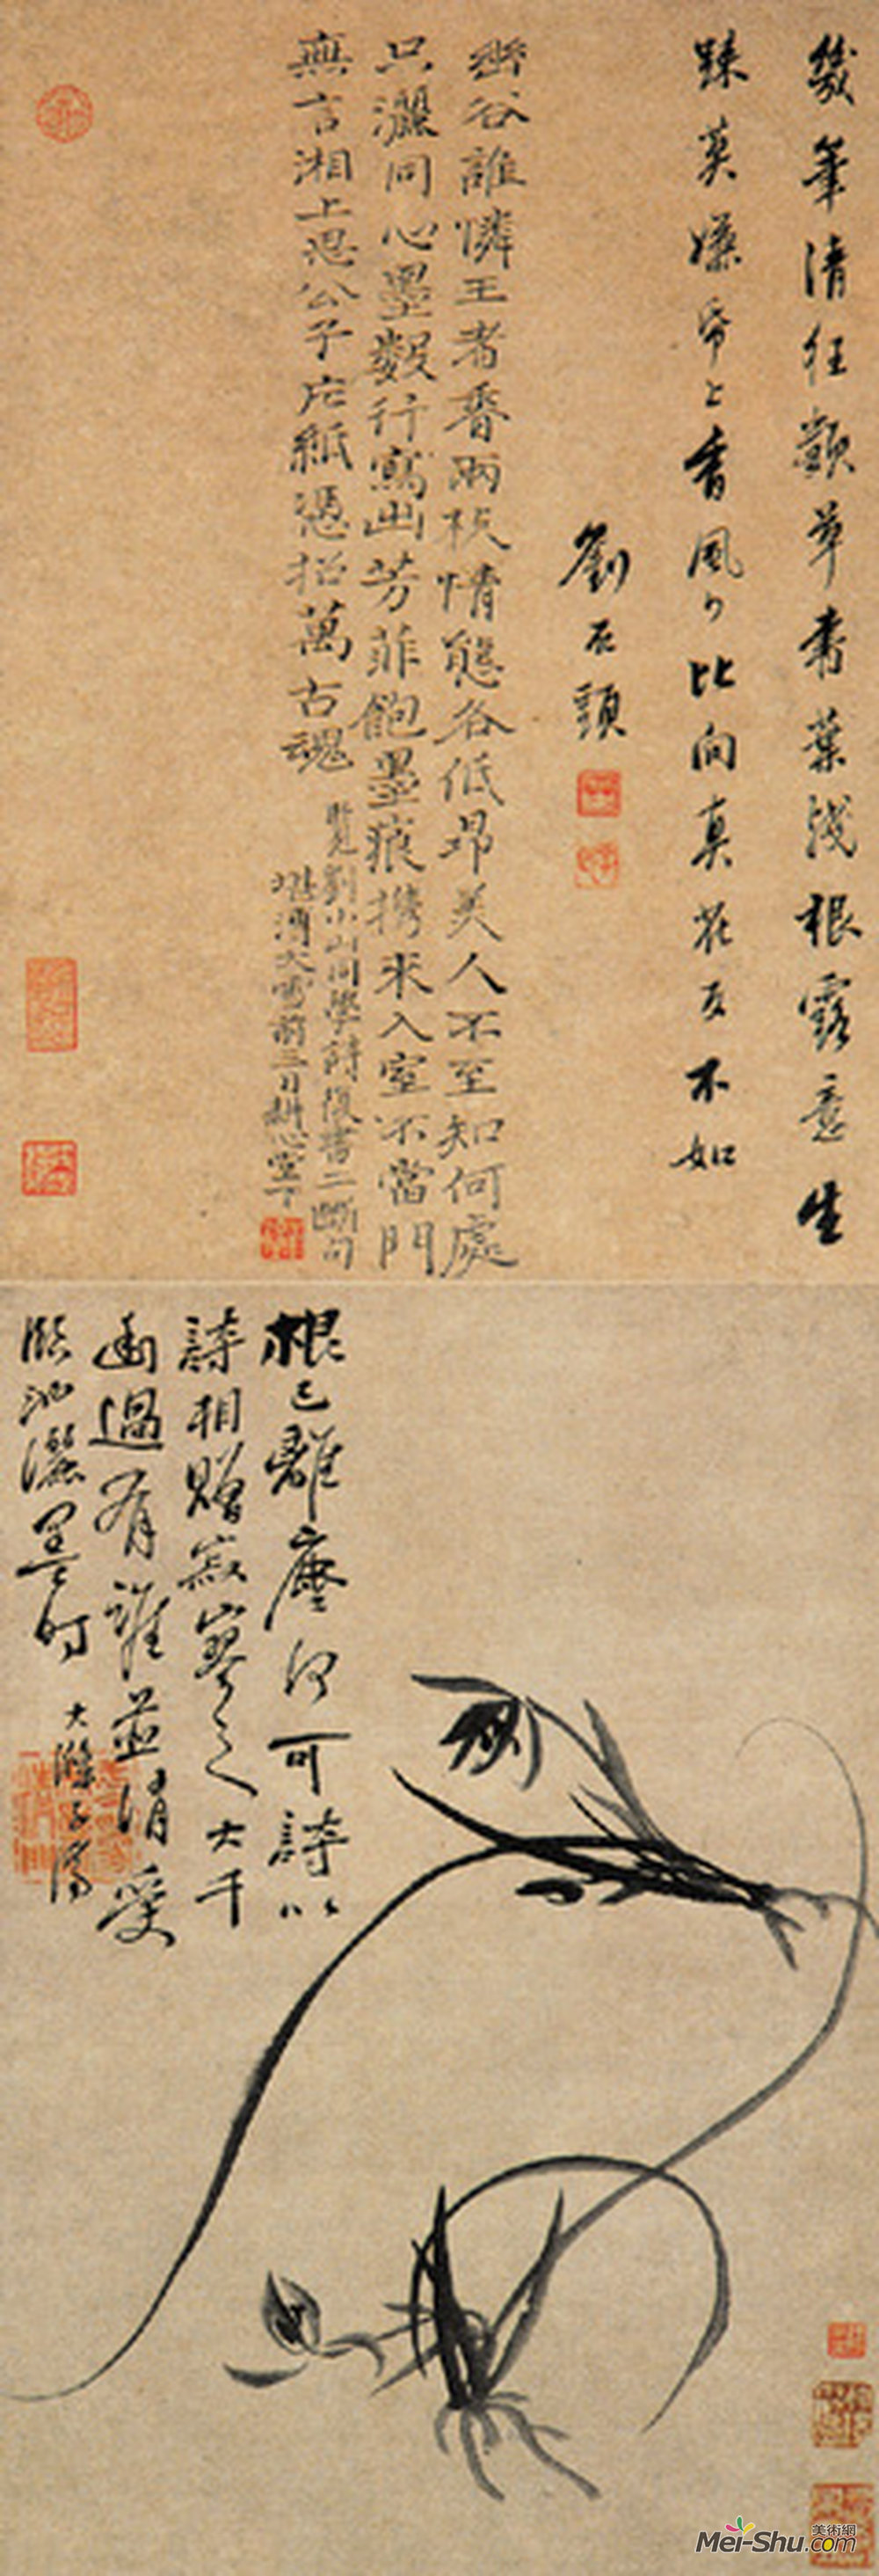 幾筆清狂顛草書葉淺根露意生
踈莫嫌帋上香風少比向真花反不如
劉石頭
幽谷誰憐王者香兩枝情態各低昂美人不至知何處
只灑同心墨數行寫出芳菲飽墨痕攜來入室不當門
無言湘上思公子片紙憑招萬古魂
覽劉小山同學詩復書二斷句
大雪前三日耕心堂下
根已離塵何可詩以
詩相贈寂寥之大千
幽過有誰並清受
臨池灑墨時
大滌子濟
Mei-Shu.com
美術網